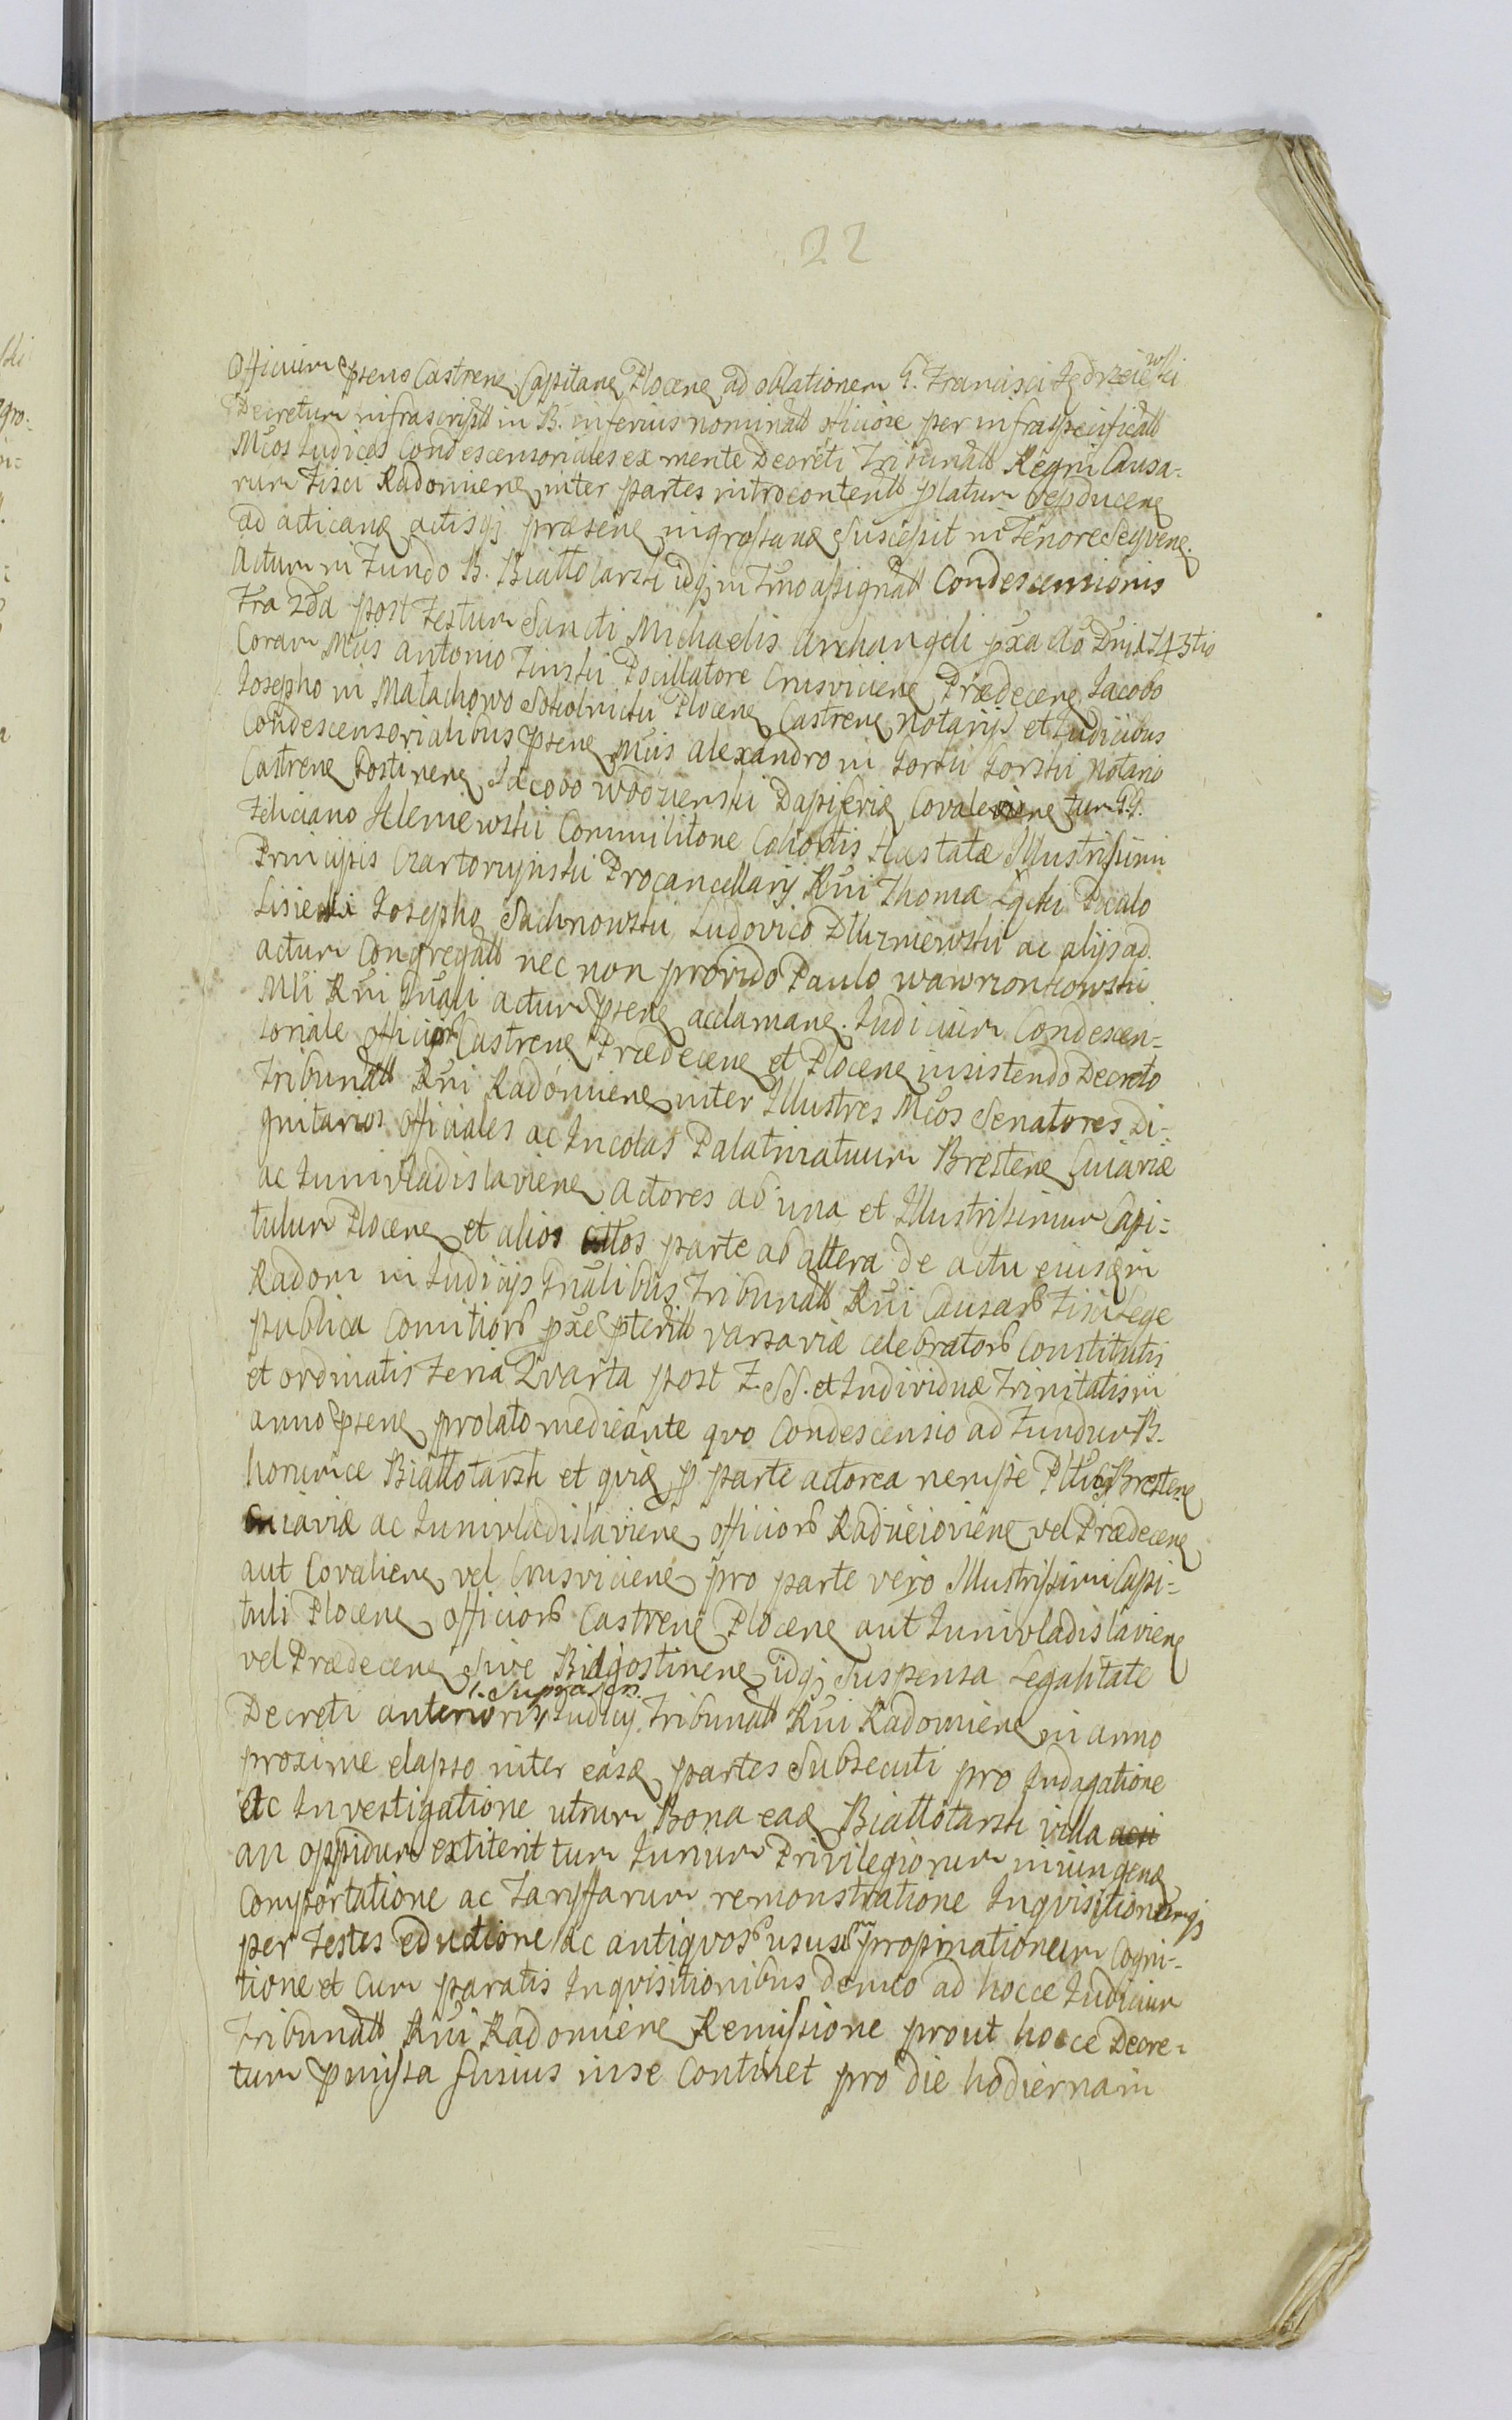 22
Officium psens Castrense Capitane Plocense ad oblationem G. Francisci Jędrzeiewski
Decretum infrascriptt in B. inferius nominatt officiose per infraspecificatt
Mcos Iudices Condescensoriales ex mente Decreti Tribunatt Regni Causa-
rum Fisci Radomiene inter partes introcontentt platum Reproducene
ad acticane actisq; præsene ingrossane Suscepit in Tenore Seqvene.
Actum in Fundo B. Białłotarsk idq; in Tmo assignatt Condescensionis
Fra 2da post Festum Sancti Michaelis Archangeli pxa Ao Dni 1743tio
Coram Mcis Antonio Pocillatore Crusviciene Prædecene Jacobo
Josepho in Małachowo Sokolnicki Plocene Castrene Notarijs et Iudicibus
Condescensorialibus psene Mcis Alexandro in Gorski Notario
Castrene Gostinene Jacobo Dapiferid Covaleviene tum GG.
Feliciano Commilitone Cohortis Hastatæ Illustrissimi
Principis Czartoryinski Procancellarij Rni Thoma Łącki
Lisiecki Josepho Sachnowski, Ludovico Dłuzniewski ac alijs ad
actum Congregatt nec non provido Paulo Wawrzonkowski
Mli Rni Gnali actum psene acclamane. Iudicium Condescen-
soriale officior Castrene Prædecene et Plocene insistendo Decreto
Tribunatt Rni Radomiene inter Illustres Mcos Senatores Di-
gnitarios officiales ac Incolas Palatinatuum Brestene Cuiaviæ
ac Junivladislaviene Actores ab una et Illustrissimum Capi-
tulum Plocene et alios Cittos parte ab altera de actu eiusdem
Radom in Iudicijs Gnalibus Tribunatt Rni Causarb Fisci Lege
publica Comitiorb pxe pteritt varsaviæ celebratorb Constitutis
et ordinatis Feria Qvarta post F. SS. et Individuæ Trinitatis in
anno psene prolato mediante qvo Condescensio ad Fundum B.
horumce Białłotarsk et qvide p parte actorea nempe Pltuum Brestene
Cuiaviæ ac Junivladislaviene, officiorb Radzieioviene vel Prædecene
aut Covaliene vel Crusviciene pro parte vero Illustrissimi Capi-
tuli Plocene officiorb Castrene Plocene aut Junivladislaviene
vel Prædecene Sive Bidgostinene idq; Suspensa Legalitate
Decreti anterioris Iudicij Tribunatt Rni Radomiene in anno
proxime elapso inter easd partes Subsecuti pro Indagatione
ac Investigatione utrum Bona ead Białłotarsk villa
an oppidum extiterit tum Jurium Privilegiorum iniungend
Comportatione ac Taryffarum remonstratione Inqvisitionumq;
per Testes eductione ac antiqvorb usuum propinationum Cogni-
tione et Cum paratis Inqvisitionibus denuo ad hocce Iudicium
Tribunatt Rni Radomiene Remissione prout hocce Decre-
tum pmissa fusius in se Continet pro die hodierna in